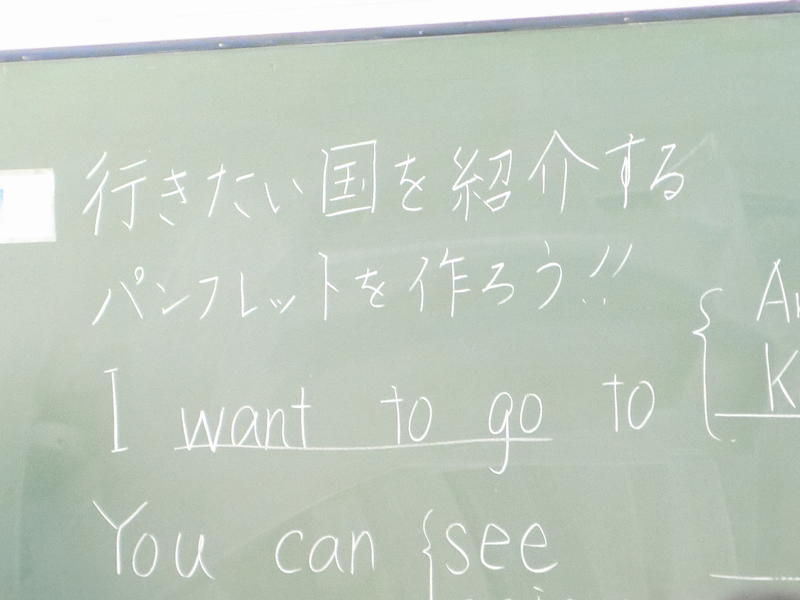 行きたい国を紹介する
パンフレットを作ろう!!
I want to go to {
You can { see